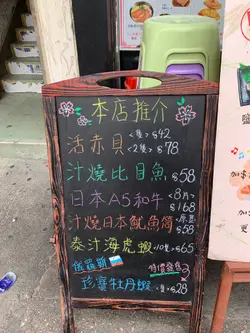 本店推介
活赤貝 <1隻> $42
<2隻> $78
汁燒比目魚 $58
日本A5和牛 <8片> $168
汁燒日本魷魚筒 <原隻> $58
泰汁海虎蝦 <10隻> $65
俄羅斯 特價發售
珍寶牡丹蝦 $28